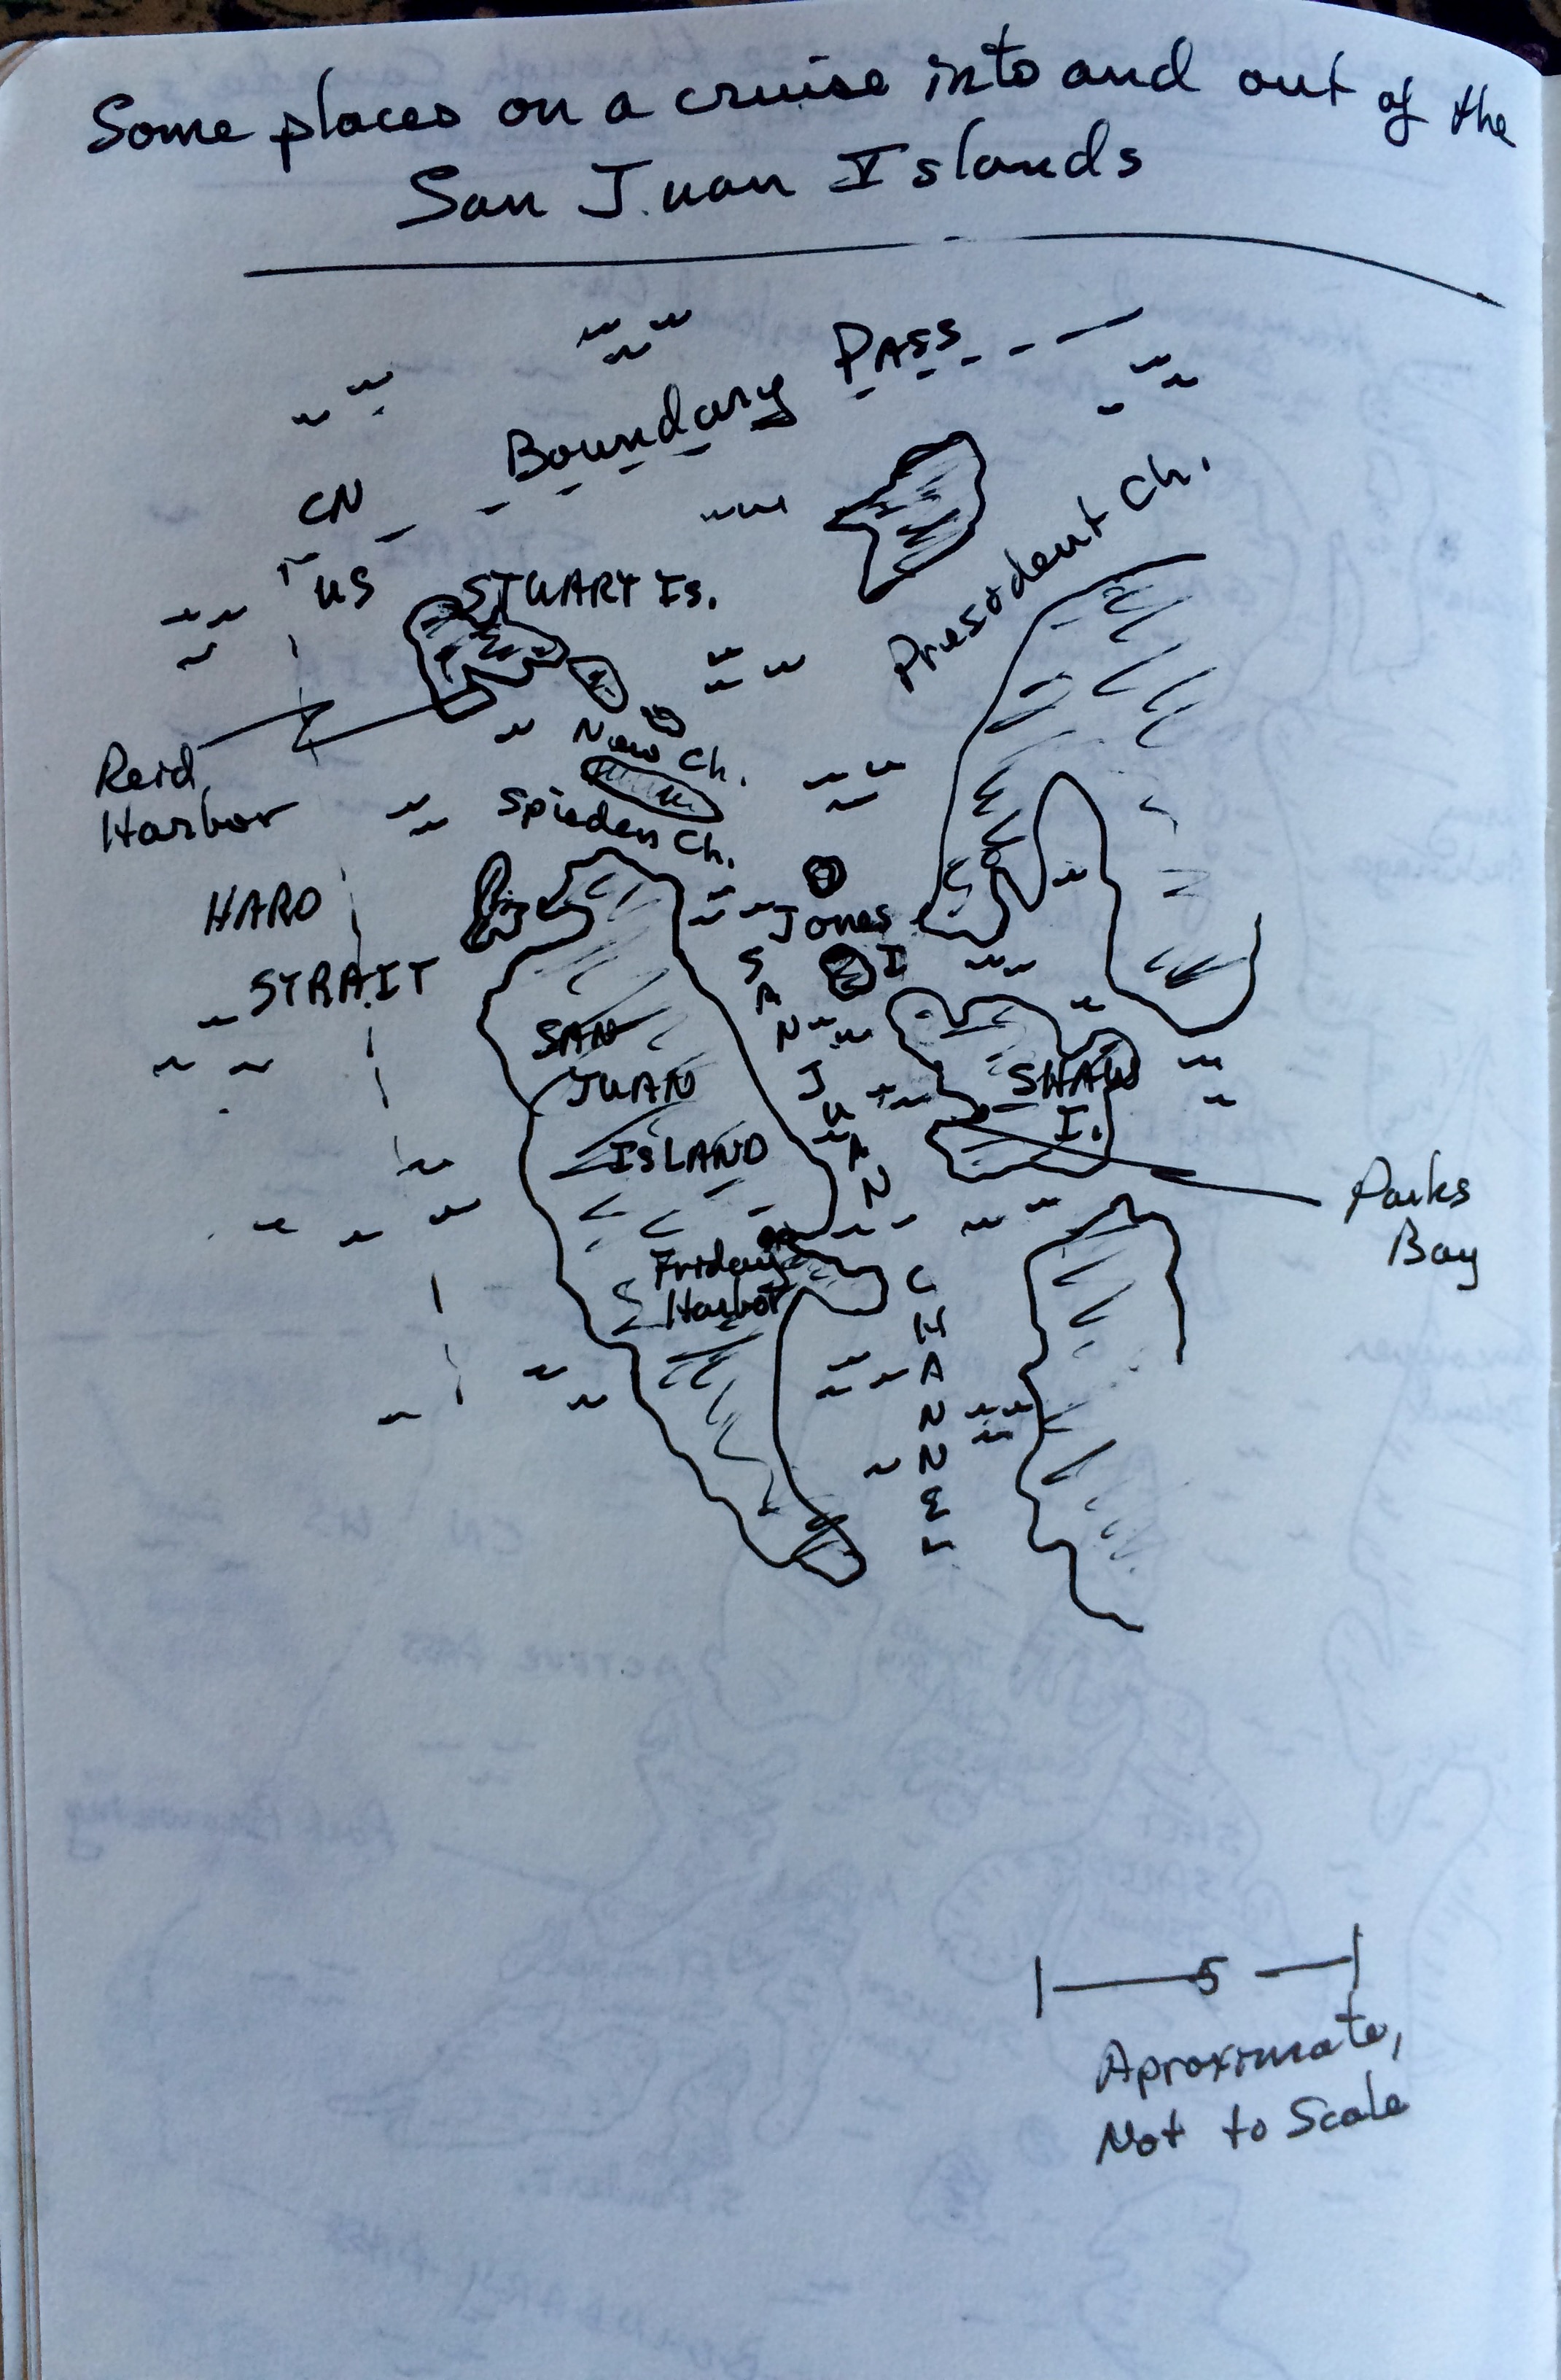 Some places on a cruise into and out of the
San Juan Islands
Boundary Pass
CN
US
STUART Is.
Presodent Ch.
Reid
Harbor
New Ch.
Spieden Ch.
HARO
STRAIT
Jones
I
SAN JUAN CHANNEL
SAN
JUAN
ISLAND
SHAW
I.
Parks
Bay
Friday
Harbor
5
Aproximate,
Not to Scale